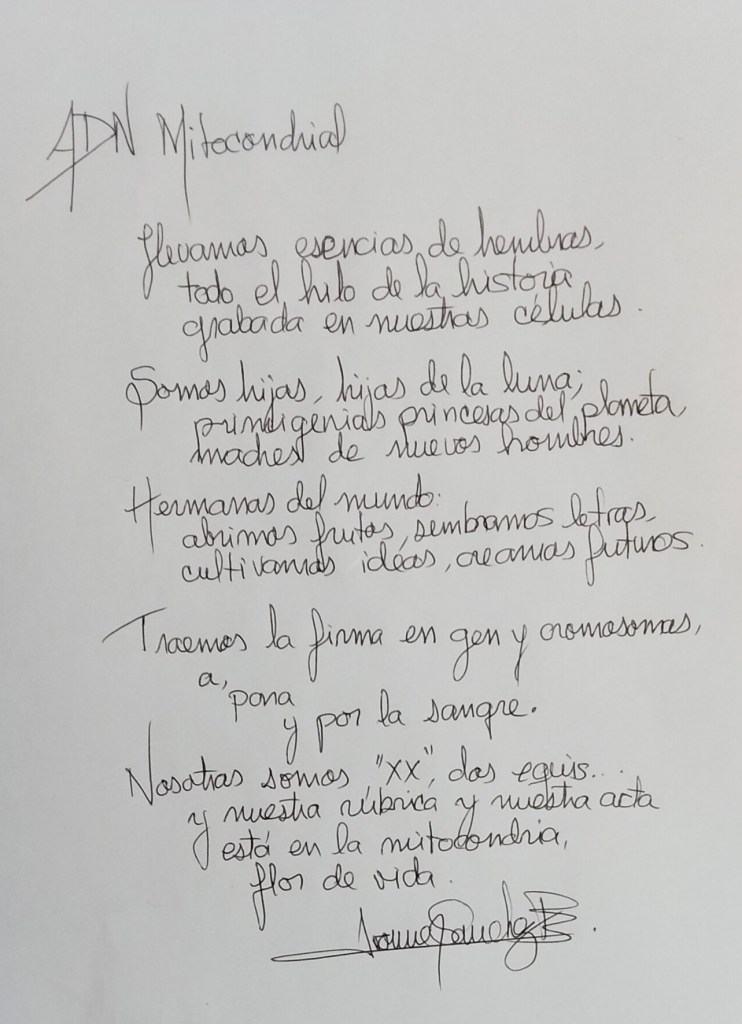 ADN Mitocondrial
Llevamos esencias de hembras,
todo el hilo de la historia
grabada en nuestras células.
Somos hijas, hijas de la luna;
primigenias princesas del planeta,
madres de nuevos hombres.
Hermanas del mundo:
abrimos frutos, sembramos letras,
cultivamos ideas, creamos futuros.
Traemos la firma en gen y cromosomas,
a, para
y por la sangre.
Nosotras somos "XX", dos equis...
y nuestra rúbrica y nuestra acta
está en la mitocondria,
flor de vida.